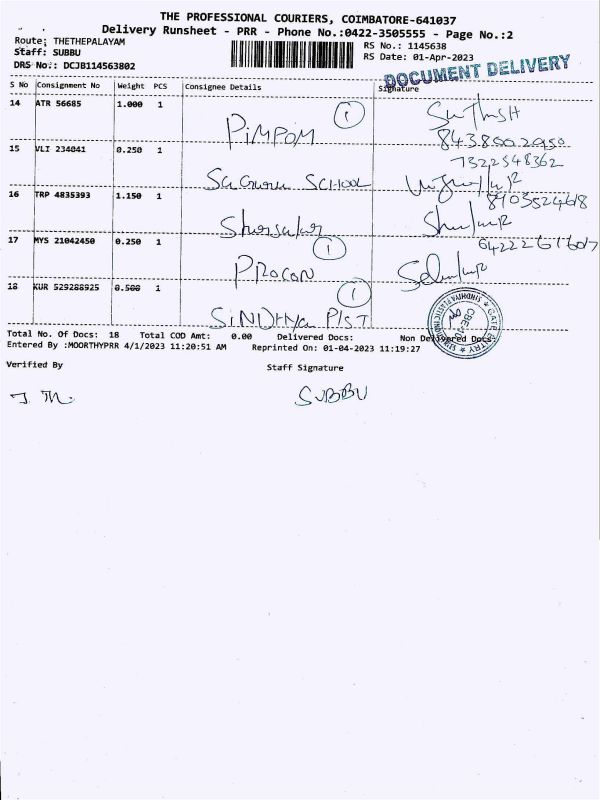 THE PROFESSIONAL COURIERS, COIMBATORE-641037
Delivery Runsheet - PRR - Phone No.:0422-3505555 - Page No.:2
Route: THETHEPALAYAM
RS No.: 1145638
Staff: SUBBU
RS Date: 01-Apr-2023
DRS No.: DCJB114563802
DOCUMENT DELIVERY
S No Consignment No Weight PCS Consignee Details Signature
14 ATR 56685 1.000 1 PIMPOM 1
15 VLI 234041 0.250 1 SCHOOL
7322548362
16 TRP 4835393 1.150 1
17 MYS 21042450 0.250 1 PROCON 1
18 KUR 529288925 0.500 1 SINDHYA PLST 1
GATE ENTRY
Total No. Of Docs: 18 Total COD Amt: 0.00 Delivered Docs: Non Delivered Docs:
Entered By :MOORTHYPRR 4/1/2023 11:20:51 AM Reprinted On: 01-04-2023 11:19:27
Verified By Staff Signature
SUBBU